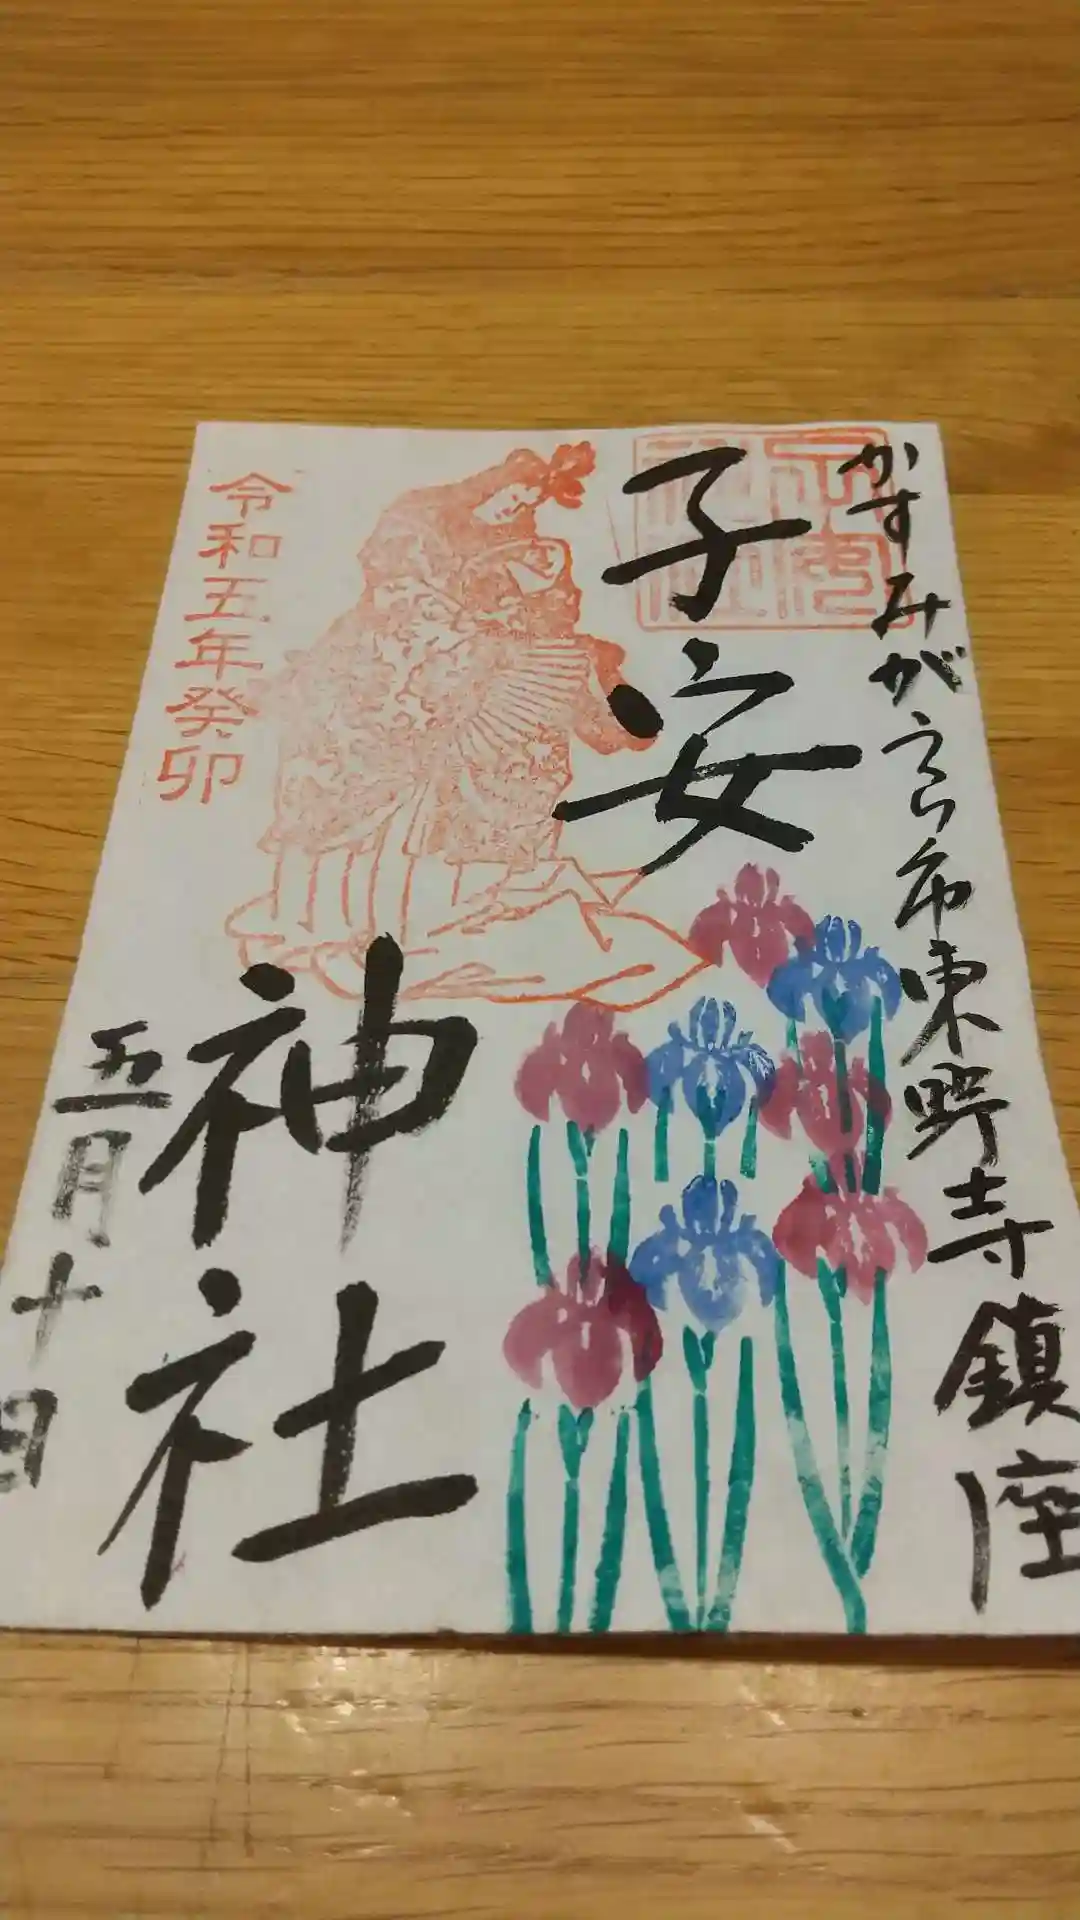 かすみがうら市東野寺鎮座
子安
神社
子安
神社
令和五年癸卯
五月十日